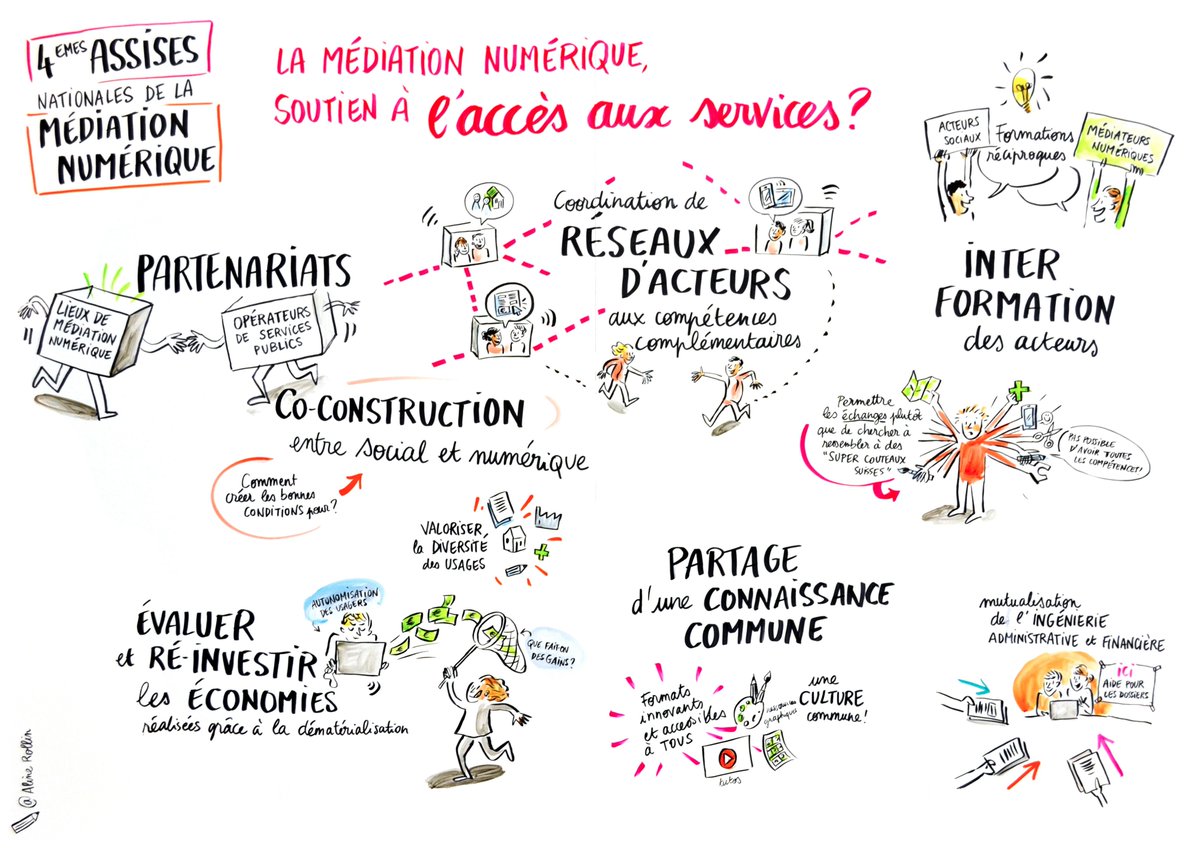 4EMES ASSISES
NATIONALES DE LA
MÉDIATION
NUMÉRIQUE
LA MÉDIATION NUMÉRIQUE,
SOUTIEN À l'accès aux services?
ACTEURS
SOCIAUX
Formations
réciproques
MÉDIATEURS
NUMÉRIQUES
PARTENARIATS
LIEUX DE
MÉDIATION
NUMÉRIQUE
OPÉRATEURS
DE SERVICES
PUBLICS
Coordination de
RÉSEAUX
D'ACTEURS
aux compétences
complémentaires
INTER
FORMATION
des acteurs
CO-CONSTRUCTION
entre social et numérique
Comment
créer les bonnes
CONDITIONS pour?
Permettre
les échanges plutôt
que de chercher à
ressembler à des
"SUPER COUTEAUX
SUISSES"
PAS POSSIBLE
D'AVOIR TOUTES
LES COMPÉTENCES!
VALORISER
la DIVERSITÉ
des USAGES
ÉVALUER
et RÉ-INVESTIR
les ÉCONOMIES
réalisées grâce à la dématérialisation
AUTONOMISATION
DES USAGERS
QUE FAIT-ON
DES GAINS?
PARTAGE
d'une CONNAISSANCE
COMMUNE
Formats
innovants
et accessibles
à TOUS
graphiques
tutos
une
CULTURE
commune!
mutualisation
de l'INGÉNIERIE
ADMINISTRATIVE et FINANCIÈRE
ici
AIDE POUR
LES DOSSIERS
@ Aline Rollin